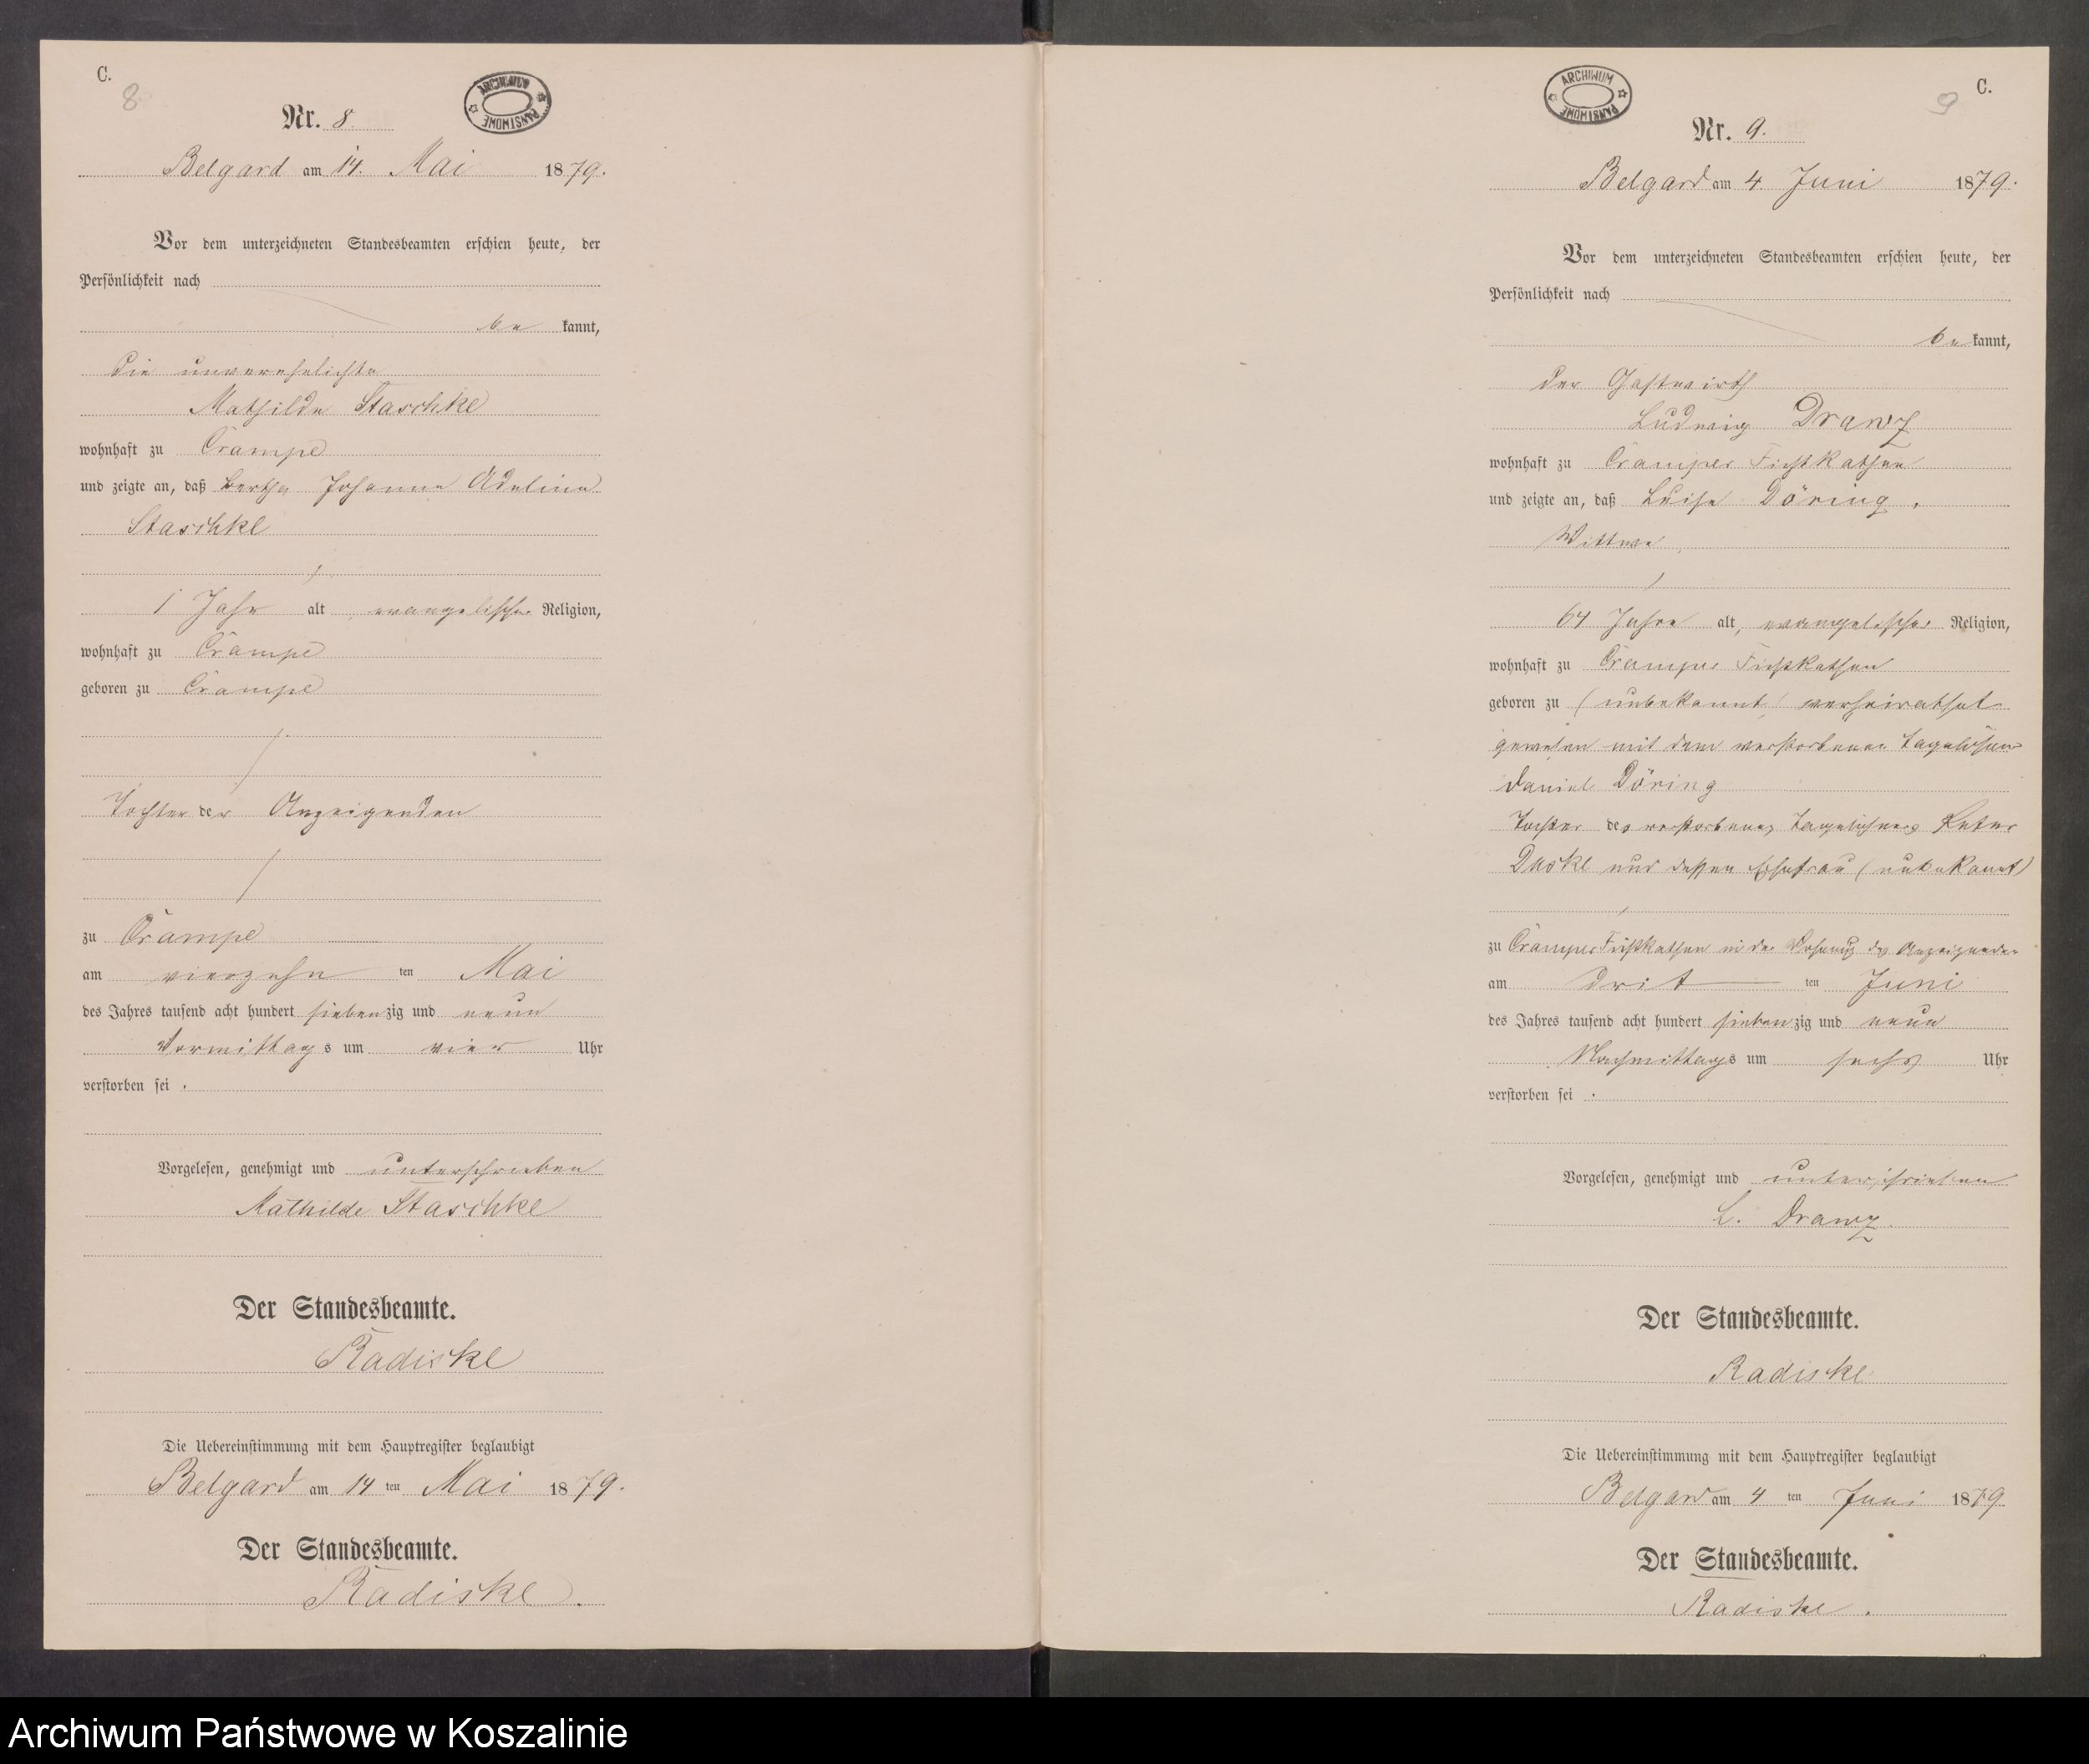 C.
8
ARCHIWUM PAŃSTWOWE
Nr. 8
Belgard am 14. Mai 1879.
Vor dem unterzeichneten Standesbeamten erschien heute, der
Persönlichkeit nach
be kannt,
die unverehelichte
Mathilde Staschke
wohnhaft zu Crampe
und zeigte an, daß Bertha Johanne Adeline
Staschke
1 Jahr alt, evangelischer Religion,
wohnhaft zu Crampe
geboren zu Crampe
Tochter der Anzeigenden
zu Crampe
am vierzehn ten Mai
des Jahres tausend acht hundert siebenzig und neun
Vormittags um vier Uhr
verstorben sei.
Vorgelesen, genehmigt und unterschrieben
Mathilde Staschke
Der Standesbeamte.
Radiske
Die Uebereinstimmung mit dem Hauptregister beglaubigt
Belgard am 14 ten Mai 1879.
Der Standesbeamte.
Radiske.
C.
9
ARCHIWUM PAŃSTWOWE
Nr. 9.
Belgard am 4 Juni 1879.
Vor dem unterzeichneten Standesbeamten erschien heute, der
Persönlichkeit nach
be kannt,
der Gastwirth
Ludwig Drawz
wohnhaft zu Cramper Fichtkathen
und zeigte an, daß Luise Döring,
Wittwe,
64 Jahre alt, evangelischer Religion,
wohnhaft zu Cramper Fichtkathen
geboren zu (unbekannt) verheirathet
gewesen mit dem verstorbenen Tagelöhner
Daniel Döring
Tochter des verstorbenen Tagelöhners Peter
Duske und dessen Ehefrau (unbekannt)
zu Cramper Fichtkathen in der Wohnung des Anzeigenden
am dritten Juni
des Jahres tausend acht hundert siebenzig und neun
Nachmittags um sechs Uhr
verstorben sei.
Vorgelesen, genehmigt und unterschrieben
L. Drawz.
Der Standesbeamte.
Radiske
Die Uebereinstimmung mit dem Hauptregister beglaubigt
Belgard am 4 ten Juni 1879
Der Standesbeamte.
Radiske.
Archiwum Państwowe w Koszalinie